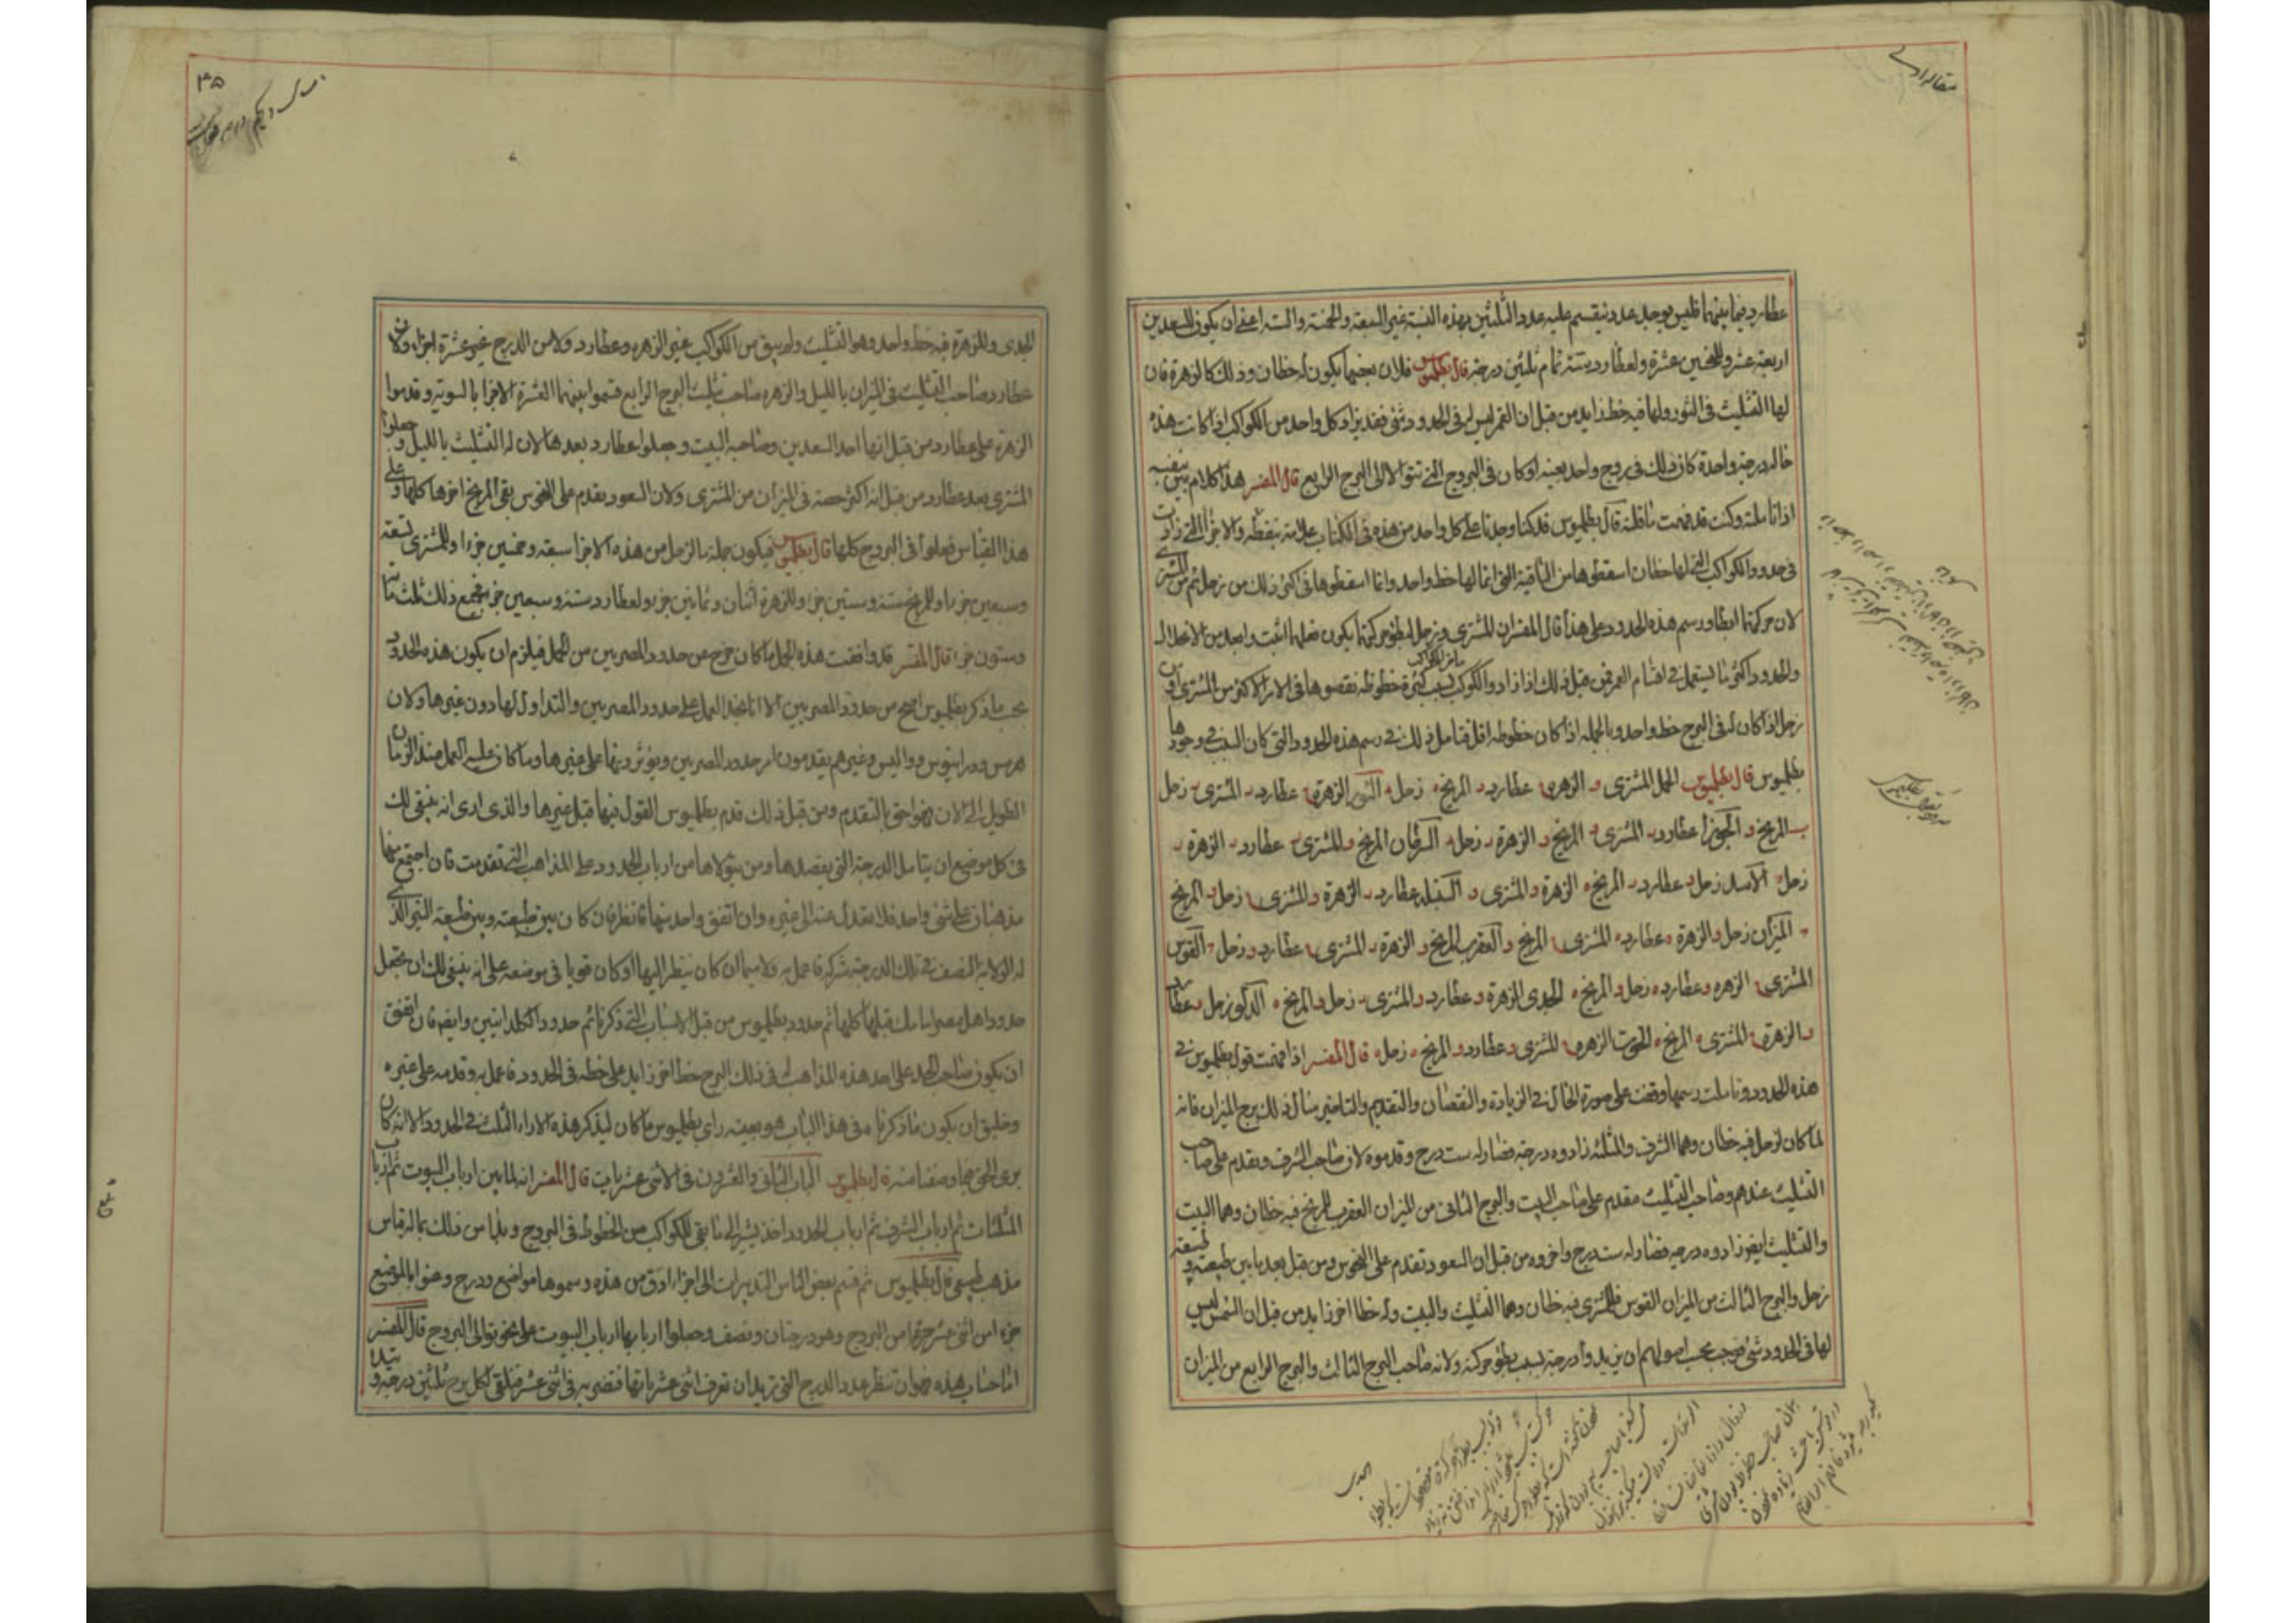 مقاله اولی
عطارد فيما بينهما فليس يوجد عدد ينقسم عليه عدد الثلثين بهذه النسبة غير السبعة والخمسة والستة اعنى ان يكون للسعدين
اربعة عشر وللنحسين عشرة ولعطارد ستة تمام ثلثين درجة قال بطلميوس فلان بعضها يكون له حظان وذلك كالزهرة فان
لها التثليث فى الثور ولها فيه حظ زايد من قبل ان القمر ليس له فى الحدود شئ فقد يزاد كل واحد من الكواكب اذا كانت هذه
حاله درجة واحدة كان ذلك فى برج واحد بعينه او كان فى البروج التى تتوالا الى البرج الرابع قال المفسر هذا كلام بين بنفسه
اذا تاملته وكنت قد فهمت ما قلته قال بطلميوس قد كنا وجدنا على كل واحد من هذه فى الكتاب علامة بنقطة والاجزا التى زادت
فى حدود الكواكب التى لها حظان اسقطوها من الباقية التى انما لها حظ واحد وانما اسقطوها فى اكثر ذلك من زحل ثم من المشترى
لان حركتهما ابطا ورسم هذه الحدود على هذا قال المفسر ان المشترى وزحل لبطؤ حركتهما يكون فعلهما اثبت وابعد من الانحلال
والحدود اكثر ما يستعمل فى اقسام العمر فمن قبل ذلك اذا زادوا الكوكب بسبب كثرة حظوظه نقصوها فى الامر الاكثر من المشترى او من
زحل اذا كان له فى البرج حظ واحد وبالجملة اذا كان حظوظه اقل فتامل ذلك فى رسم هذه الحدود التى كان السبب فى وجودها
بطلميوس قال بطلميوس الحمل المشترى و الزهرة ح عطارد ز المريخ ه زحل د الثور الزهرة ح عطارد ز المشترى ز زحل
ب المريخ و الجوزا عطارد ز المشترى و المريخ و الزهرة ز زحل د السرطان المريخ و المشترى ز عطارد ز الزهرة ز
زحل د الاسد زحل و عطارد ز المريخ ه الزهرة و المشترى و السنبلة عطارد ز الزهرة و المشترى ه زحل و المريخ
و الميزان زحل و الزهرة ه عطارد ه المشترى ح المريخ و العقرب المريخ و الزهرة ز المشترى ح عطارد و زحل د القوس
المشترى ح الزهره و عطارد ه زحل و المريخ ه الجدى الزهرة و عطارد و المشترى ز زحل و المريخ ه الدلو زحل و عطارد
و الزهرة ح المشترى ه المريخ ه الحوت الزهرة ح المشترى و عطارد و المريخ ه زحل ه قال المفسر اذا فهمت قول بطلميوس فى
هذه الحدود وتاملت رسمها وقفت على صورة الحال فى الزيادة والنقصان والتقديم والتاخير مثال ذلك برج الميزان فانه
لما كان لزحل فيه حظان وهما الشرف والمثلثة زادوه درجة فصار له ست درج وقدموه لان صاحب الشرف يتقدم على صاحب
التثليث عندهم وصاحب التثليث مقدم على صاحب البيت والبرج الثانى من الميزان العقرب للمريخ فيه حظان وهما البيت
والتثليث ايضا زادوه درجة فصار له ست درج واخروه من قبل ان السعود تتقدم على النحوس ومن قبل بعد ما بين طبيعته وطبيعة
زحل والبرج الثالث من الميزان القوس فللمشترى فيه حظان وهما التثليث والبيت وله حظا اخر زايد من قبل ان الشمس ليس
لها فى الحدود شئ فوجب بحسب اصولهم ان يزيدوا درجة بسبب بطؤ حركته ولانه صاحب البرج الثالث والبرج الرابع من الميزان
۳۵
الجدى وللزهرة فيه حظ واحد وهو التثليث ولم يبق من الكواكب غير الزهره وعطارد ولا من الدرج غير عشرة اجزا ولان
عطارد صاحب التثليث فى الميزان بالليل والزهره صاحب تثليث البرج الرابع قسموا بينهما العشرة الاجزا بالسوية وقدموا
الزهرة على عطارد من قبل انها احد السعدين وصاحبة البيت وجعلوا عطارد بعدها لان له التثليث بالليل وجعلوا
المشترى بعد عطارد من قبل انه اكثر حصة فى الميزان من المشترى ولان السعود يقدم على النحوس بقى المريخ اخرها كلها وعلى
هذا القياس فعلوا فى البروج كلها قال بطلميوس فيكون جملة ما لزحل من هذه الاجزا سبعة وخمسين جزءا وللمشترى تسعة
وسبعين جزءا وللمريخ ستة وستين جزءا وللزهرة اثنان وثمانين جزءا ولعطارد ستة وسبعين جزءا فجميع ذلك ثلث مائة
وستون جزءا قال المفسر قد وافقت هذه الجمل ما كان خرج عن حدود المصريين من الجمل فيلزم ان يكون هذه الحدود
بحسب ما ذكر بطلميوس اصح من حدود المصريين الا انا نجد العمل على حدود المصريين والتداول لها دون غيرها ولان
هرمس ودرانيوس وواليس وغيرهم يقدمون امر حدود المصريين ويؤثرونها على غيرها وما كان عليه العمل منذ الزمان
الطويل الى الان فهو احق بالتقدم ومن قبل ذلك قدم بطلميوس القول فيها قبل غيرها والذى ارى انه ينبغى لك
فى كل موضع ان يتامل الدرجة التى يقصدها ومن يتولاها من ارباب الحدود على المذاهب التى تقدمت فان اجتمع منها
مذهبان على شئ واحد فلا تعدل عنه الى غيره وان اتفق واحد منها فانظر فان كان بين طبيعته وبين طبيعة النير الذى
له الولاية المنصف فى تلك الدرجة شركة فاعمل به ولا سيما ان كان ينظر اليها او كان قويا فى موضعه على انه ينبغى لك ان تجعل
حدود اهل مصر امامك قبلها كلها ثم حدود بطلميوس من قبل الاسباب التى ذكرنا ثم حدود الكلدانيين وايضا فان اتفق
ان يكون صاحب الحد على احد هذه المذاهب له فى ذلك البرج حظ اخر زايد على حظه فى الحدود فاعمل به وقدمه على غيره
وخليق ان يكون ما ذكرناه فى هذا الباب هو بعينه راى بطلميوس ما كان ليذكر هذه الاراء الثلث فى الحدود الا لانه كان
يرى الحق فيها وصفنا منه قال بطلميوس الباب الثانى والعشرون فى الاثنى عشريات قال المفسر انه لما بين ارباب البيوت ثم ارباب
المثلثات ثم ارباب الشرف ثم ارباب الحدود اخذ يشير الى ما بقى للكواكب من الحظوظ فى البروج وبدا من ذلك بماله قياس
مذهب طبيعى قال بطلميوس ثم قسم بعض الناس التدبيرات الى اجزا ادق من هذه وسموها مواضع ودرج وعنوا بالموضع
جزءا من اثنى عشر جزءا من البروج وهو درجتان ونصف وجعلوا اربابها ارباب البيوت على نحو توالى البروج قال المفسر
اما حساب هذه فهو ان تنظر عدد الدرج التى تريد ان تعرف اثنى عشرياتها فتضربه فى اثنى عشر فتلقى لكل برج ثلثين درجة وتبدا